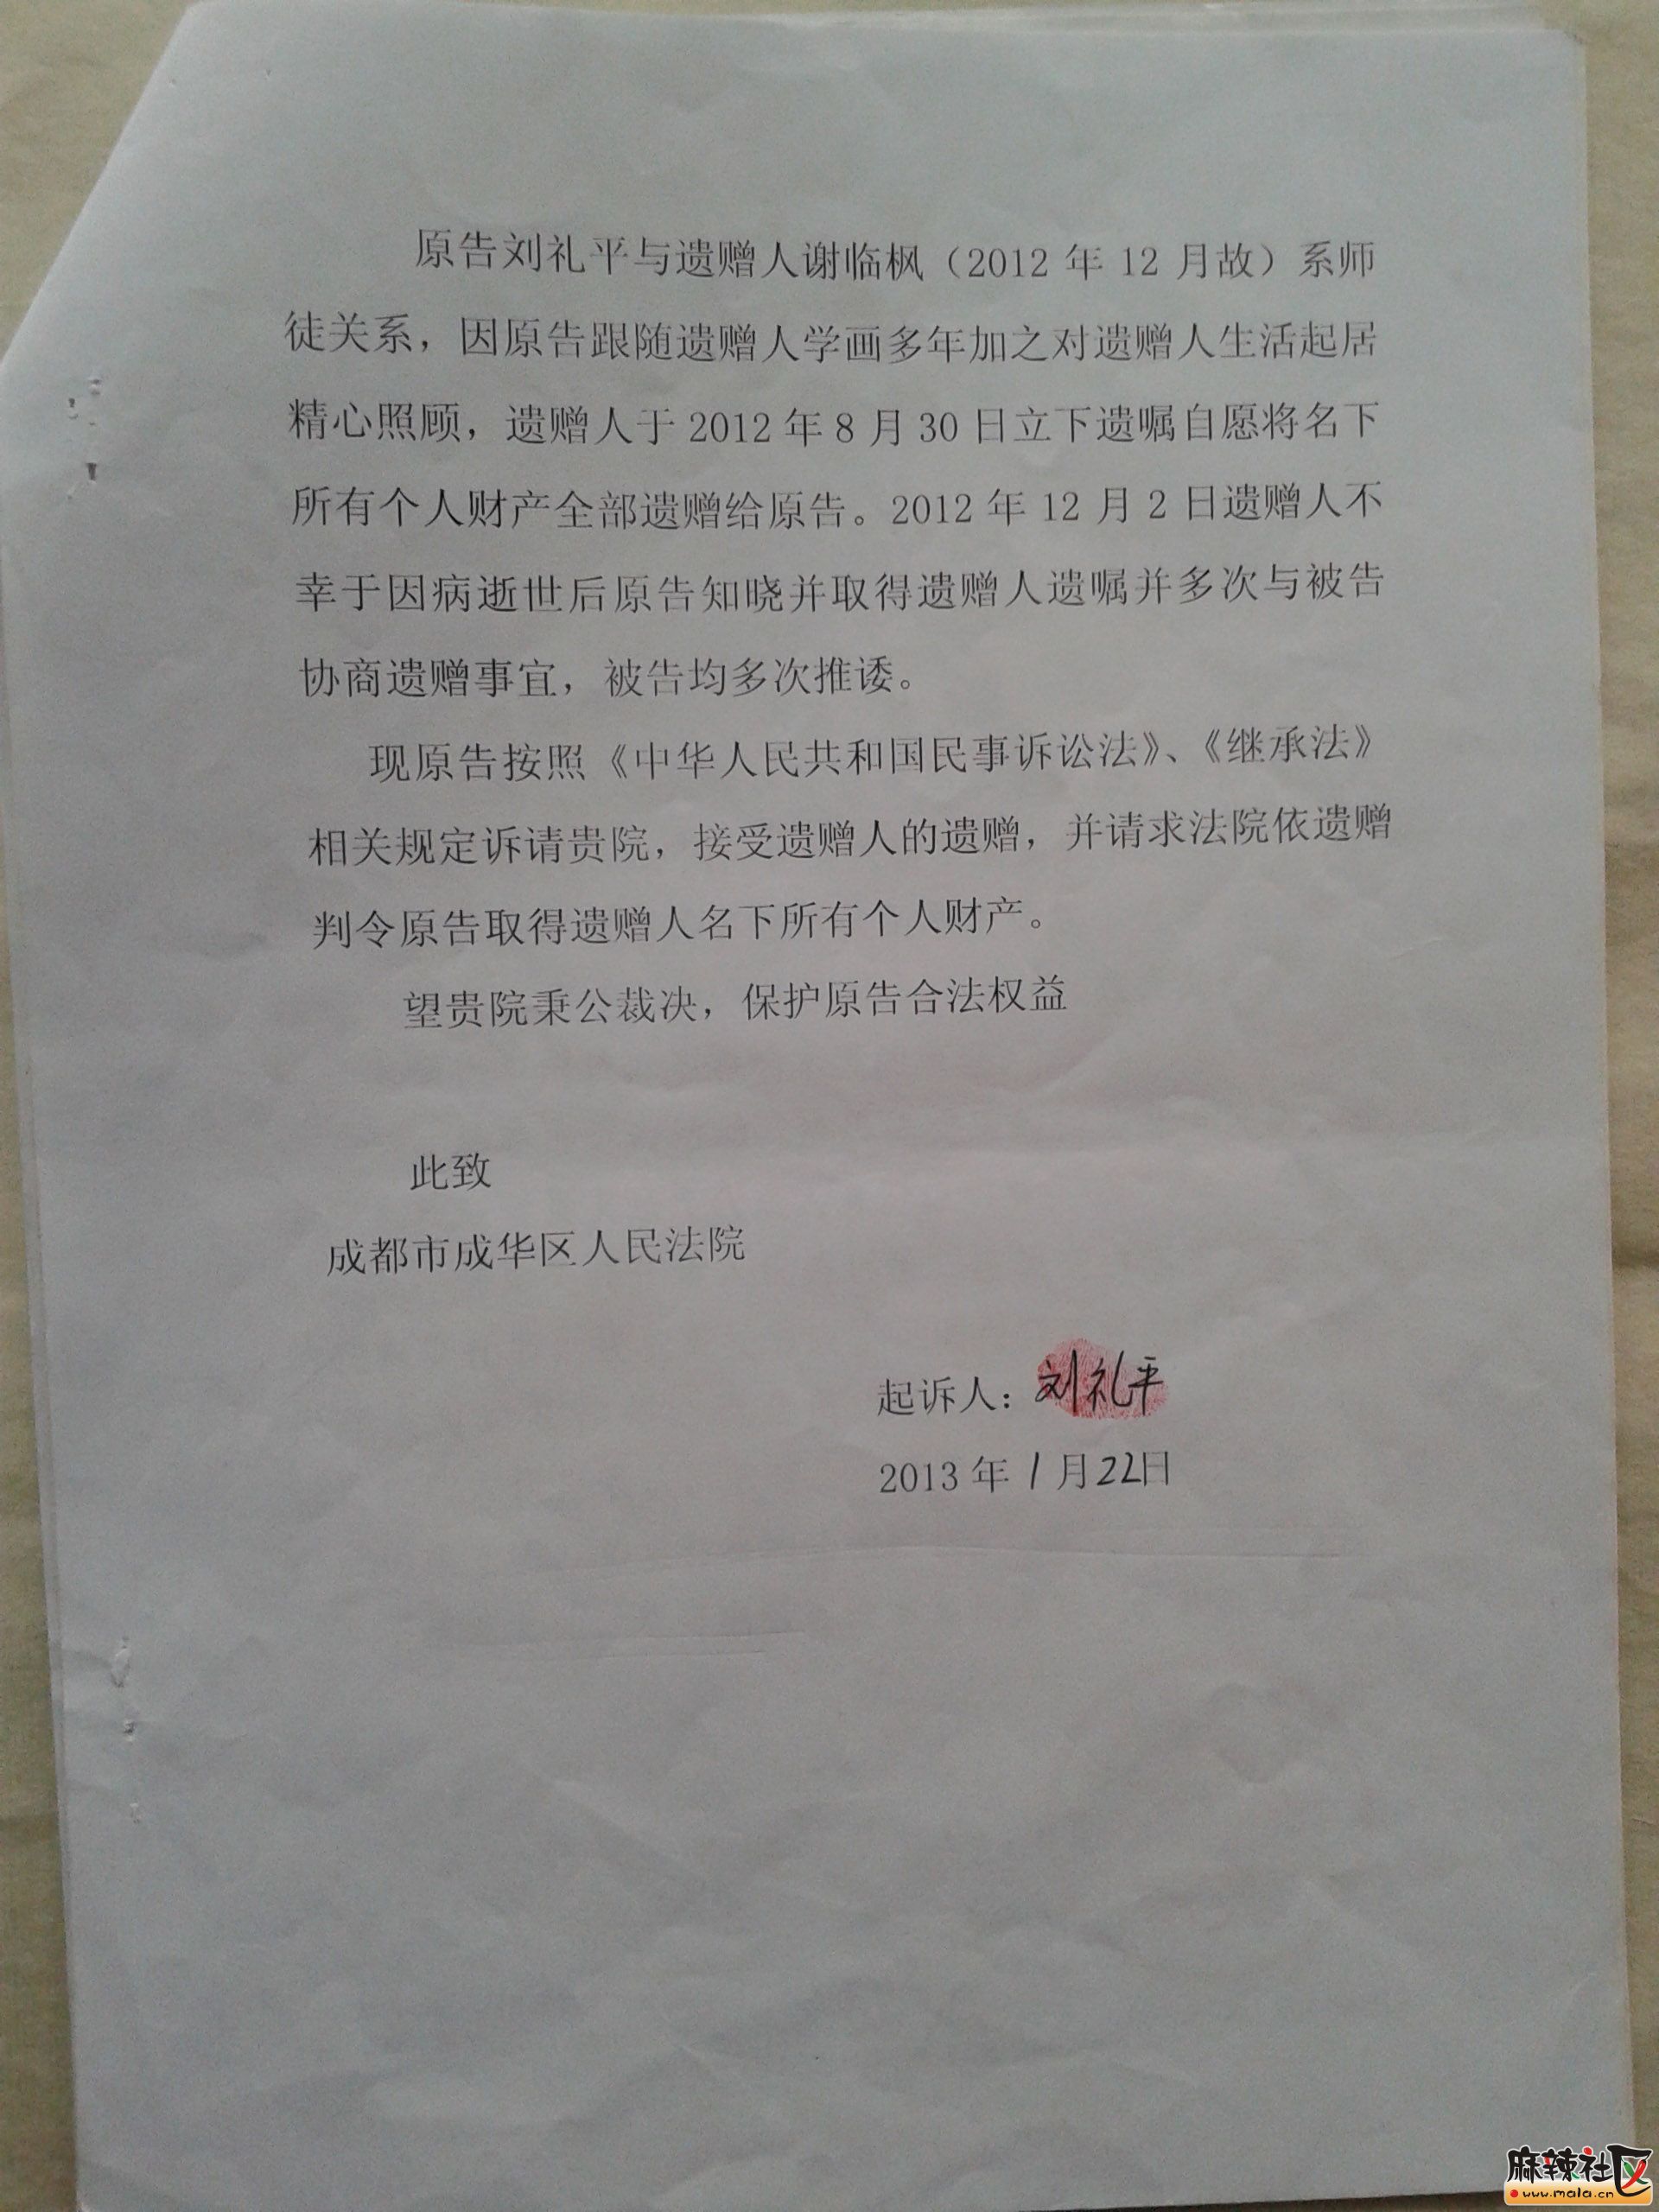 原告刘礼平与遗赠人谢临枫（2012年12月故）系师
徒关系，因原告跟随遗赠人学画多年加之对遗赠人生活起居
精心照顾，遗赠人于2012年8月30日立下遗嘱自愿将名下
所有个人财产全部遗赠给原告。2012年12月2日遗赠人不
幸于因病逝世后原告知晓并取得遗赠人遗嘱并多次与被告
协商遗赠事宜，被告均多次推诿。
现原告按照《中华人民共和国民事诉讼法》、《继承法》
相关规定诉请贵院，接受遗赠人的遗赠，并请求法院依遗赠
判令原告取得遗赠人名下所有个人财产。
望贵院秉公裁决，保护原告合法权益
此致
成都市成华区人民法院
起诉人：刘礼平
2013年1月22日
麻辣社区
www.mala.cn